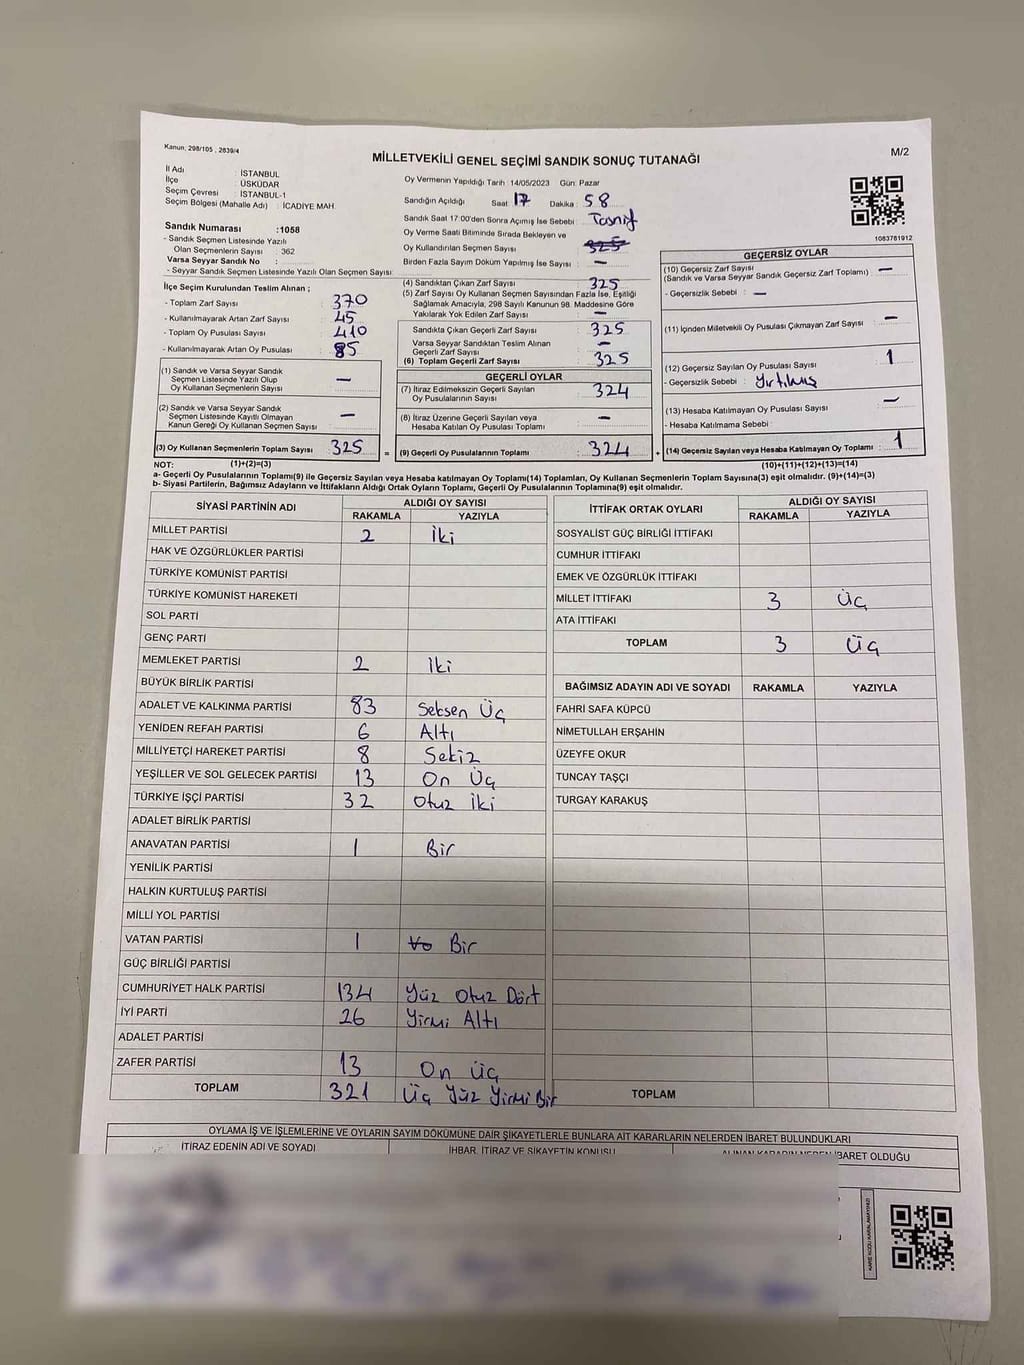 Kanun, 298/105 , 2839/4
MİLLETVEKİLİ GENEL SEÇİMİ SANDIK SONUÇ TUTANAĞI
M/2
İl Adı : İSTANBUL
İlçe : ÜSKÜDAR
Seçim Çevresi : İSTANBUL-1
Seçim Bölgesi (Mahalle Adı) : İCADİYE MAH.
Sandık Numarası :1058
- Sandık Seçmen Listesinde Yazılı
Olan Seçmenlerin Sayısı : 362
Varsa Seyyar Sandık No :
- Seyyar Sandık Seçmen Listesinde Yazılı Olan Seçmen Sayısı:
Oy Vermenin Yapıldığı Tarih :14/05/2023 Gün: Pazar
Sandığın Açıldığı Saat : 17 Dakika : 58
Sandık Saat 17:00'den Sonra Açımış İse Sebebi : Tasnif
Oy Verme Saati Bitiminde Sırada Bekleyen ve
Oy Kullandırılan Seçmen Sayısı : 325
Birden Fazla Sayım Döküm Yapılmış İse Sayısı : –
1083781912
İlçe Seçim Kurulundan Teslim Alınan ;
- Toplam Zarf Sayısı : 370
- Kullanılmayarak Artan Zarf Sayısı : 45
- Toplam Oy Pusulası Sayısı : 410
- Kullanılmayarak Artan Oy Pusulası : 85
(1) Sandık ve Varsa Seyyar Sandık
Seçmen Listesinde Yazılı Olup
Oy Kullanan Seçmenlerin Sayısı : –
(2) Sandık ve Varsa Seyyar Sandık
Seçmen Listesinde Kayıtlı Olmayan
Kanun Gereği Oy Kullanan Seçmen Sayısı : –
(3) Oy Kullanan Seçmenlerin Toplam Sayısı : 325
(4) Sandıktan Çıkan Zarf Sayısı : 325
(5) Zarf Sayısı Oy Kullanan Seçmen Sayısından Fazla İse, Eşitliği
Sağlamak Amacıyla, 298 Sayılı Kanunun 98. Maddesine Göre
Yakılarak Yok Edilen Zarf Sayısı : –
Sandıkta Çıkan Geçerli Zarf Sayısı : 325
Varsa Seyyar Sandıktan Teslim Alınan
Geçerli Zarf Sayısı : –
(6) Toplam Geçerli Zarf Sayısı : 325
GEÇERLİ OYLAR
(7) İtiraz Edilmeksizin Geçerli Sayılan
Oy Pusulalarının Sayısı : 324
(8) İtiraz Üzerine Geçerli Sayılan veya
Hesaba Katılan Oy Pusulası Toplamı : –
= (9) Geçerli Oy Pusulalarının Toplamı : 324
GEÇERSİZ OYLAR
(10) Geçersiz Zarf Sayısı : –
(Sandık ve Varsa Seyyar Sandık Geçersiz Zarf Toplamı)
- Geçersizlik Sebebi : –
(11) İçinden Milletvekili Oy Pusulası Çıkmayan Zarf Sayısı : –
(12) Geçersiz Sayılan Oy Pusulası Sayısı : 1
- Geçersizlik Sebebi : Yırtılmış
(13) Hesaba Katılmayan Oy Pusulası Sayısı : –
- Hesaba Katılmama Sebebi :
+ (14) Geçersiz Sayılan veya Hesaba Katılmayan Oy Toplamı : 1
NOT: (1)+(2)=(3)
(10)+(11)+(12)+(13)=(14)
a- Geçerli Oy Pusulalarının Toplamı(9) ile Geçersiz Sayılan veya Hesaba katılmayan Oy Toplamı(14) Toplamları, Oy Kullanan Seçmenlerin Toplam Sayısına(3) eşit olmalıdır. (9)+(14)=(3)
b- Siyasi Partilerin, Bağımsız Adayların ve İttifakların Aldığı Ortak Oyların Toplamı, Geçerli Oy Pusulalarının Toplamına(9) eşit olmalıdır.
SİYASİ PARTİNİN ADI ALDIĞI OY SAYISI
RAKAMLA YAZIYLA
MİLLET PARTİSİ 2 İki
HAK VE ÖZGÜRLÜKLER PARTİSİ
TÜRKİYE KOMÜNİST PARTİSİ
TÜRKİYE KOMÜNİST HAREKETİ
SOL PARTİ
GENÇ PARTİ
MEMLEKET PARTİSİ 2 İki
BÜYÜK BİRLİK PARTİSİ
ADALET VE KALKINMA PARTİSİ 83 Seksen Üç
YENİDEN REFAH PARTİSİ 6 Altı
MİLLİYETÇİ HAREKET PARTİSİ 8 Sekiz
YEŞİLLER VE SOL GELECEK PARTİSİ 13 On Üç
TÜRKİYE İŞÇİ PARTİSİ 32 Otuz İki
ADALET BİRLİK PARTİSİ
ANAVATAN PARTİSİ 1 Bir
YENİLİK PARTİSİ
HALKIN KURTULUŞ PARTİSİ
MİLLİ YOL PARTİSİ
VATAN PARTİSİ 1 Bir
GÜÇ BİRLİĞİ PARTİSİ
CUMHURİYET HALK PARTİSİ 134 Yüz Otuz Dört
İYİ PARTİ 26 Yirmi Altı
ADALET PARTİSİ
ZAFER PARTİSİ 13 On Üç
TOPLAM 321 Üç Yüz Yirmi Bir
İTTİFAK ORTAK OYLARI ALDIĞI OY SAYISI
RAKAMLA YAZIYLA
SOSYALİST GÜÇ BİRLİĞİ İTTİFAKI
CUMHUR İTTİFAKI
EMEK VE ÖZGÜRLÜK İTTİFAKI
MİLLET İTTİFAKI 3 Üç
ATA İTTİFAKI
TOPLAM 3 Üç
BAĞIMSIZ ADAYIN ADI VE SOYADI RAKAMLA YAZIYLA
FAHRİ SAFA KÜPCÜ
NİMETULLAH ERŞAHİN
ÜZEYFE OKUR
TUNCAY TAŞÇI
TURGAY KARAKUŞ
TOPLAM
OYLAMA İŞ VE İŞLEMLERİNE VE OYLARIN SAYIM DÖKÜMÜNE DAİR ŞİKAYETLERLE BUNLARA AİT KARARLARIN NELERDEN İBARET BULUNDUKLARI
İTİRAZ EDENİN ADI VE SOYADI İHBAR, İTİRAZ VE ŞİKAYETİN KONUSU ALINAN KARARIN NEDEN İBARET OLDUĞU